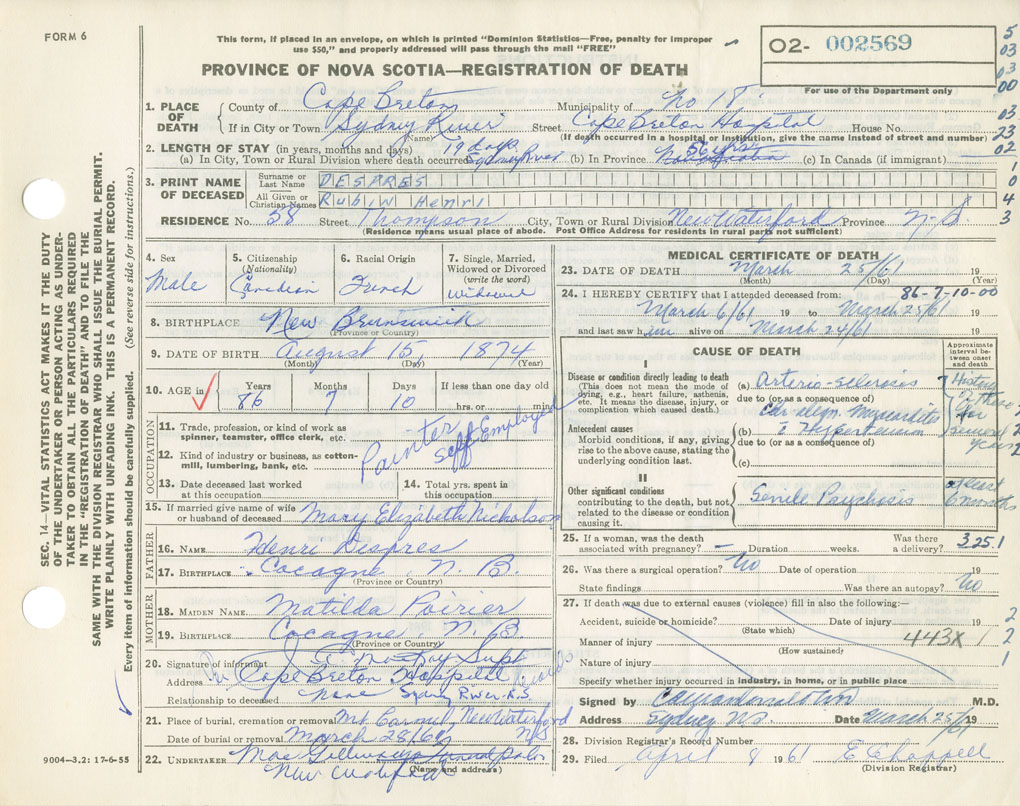 FORM 6
This form, if placed in an envelope, on which is printed "Dominion Statistics—Free, penalty for improper
use $50," and properly addressed will pass through the mail "FREE"
O2- 002569
For use of the Department only
PROVINCE OF NOVA SCOTIA—REGISTRATION OF DEATH
1. PLACE OF DEATH
County of Cape Breton Municipality of
If in City or Town Sydney River Street Cape Breton Hospital House No.
(Name) (If death occurred in a hospital or institution, give the name instead of street and number)
2. LENGTH OF STAY (in years, months and days) 19 days 56 yrs
(a) In City, Town or Rural Division where death occurred Sydney River (b) In Province Nova Scotia (c) In Canada (if immigrant)
3. PRINT NAME OF DECEASED
Surname or Last Name DESPRES
All Given or Christian Names RUBIN Henri
RESIDENCE No. 58 Street Thompson City, Town or Rural Division New Waterford Province N.S.
(Residence means usual place of abode. Post Office Address for residents in rural parts not sufficient)
4. Sex
Male
5. Citizenship
(Nationality)
Canadian
6. Racial Origin
French
7. Single, Married,
Widowed or Divorced
(write the word)
Widowed
8. BIRTHPLACE New Brunswick
(Province or Country)
9. DATE OF BIRTH August 15, 1874
(Month) (Day) (Year)
10. AGE in Years Months Days If less than one day old
86 7 10 hrs. or min.
OCCUPATION
11. Trade, profession, or kind of work as
spinner, teamster, office clerk, etc.
Painter Self Employed
12. Kind of industry or business, as cotton-
mill, lumbering, bank, etc.
13. Date deceased last worked
at this occupation
14. Total yrs. spent in
this occupation
15. If married give name of wife
or husband of deceased Mary Elizabeth Nicholson
FATHER
16. NAME Henri Despres
17. BIRTHPLACE Cocagne, N. B.
(Province or Country)
MOTHER
18. MAIDEN NAME Matilda Poirier
19. BIRTHPLACE Cocagne, N. B.
(Province or Country)
20. Signature of informant Supt
Address Cape Breton Hospital
Sydney River N.S.
Relationship to deceased none
21. Place of burial, cremation or removal Mt Carmel, New Waterford
NS
Date of burial or removal March 28/61
22. UNDERTAKER
New Waterford
(Name and address)
MEDICAL CERTIFICATE OF DEATH
23. DATE OF DEATH March 25/61 19
(Month) (Day) (Year)
24. I HEREBY CERTIFY that I attended deceased from: 86-7-10-00
March 6/61 19 to March 25/61 19
and last saw him alive on March 24/61 19
CAUSE OF DEATH
Approximate
interval be-
tween onset
and death
I
Disease or condition directly leading to death
(This does not mean the mode of
dying, e.g., heart failure, asthenia,
etc. It means the disease, injury, or
complication which caused death.)
(a) Arterio-sclerosis
due to (or as a consequence of)
Antecedent causes
Morbid conditions, if any, giving
rise to the above cause, stating the
underlying condition last.
(b) Hypertension
due to (or as a consequence of)
(c)
II
Other significant conditions
contributing to the death, but not
related to the disease or condition
causing it.
Senile Psychosis
at least
6 months
25. If a woman, was the death
associated with pregnancy? — Duration weeks. Was there
a delivery? 325.1
26. Was there a surgical operation? No Date of operation 19
State findings Was there an autopsy? No
27. If death was due to external causes (violence) fill in also the following:—
Accident, suicide or homicide? Date of injury 19
(State which)
Manner of injury 443X
(How sustained)
Nature of injury
Specify whether injury occurred in industry, in home, or in public place
Signed by M.D.
Address Sydney N.S. Date March 25/61 19
28. Division Registrar's Record Number
29. Filed April 8 1961 E Chappell
(Division Registrar)
SEC. 14—VITAL STATISTICS ACT MAKES IT THE DUTY
OF THE UNDERTAKER OR PERSON ACTING AS UNDER-
TAKER TO OBTAIN ALL THE PARTICULARS REQUIRED
IN THE "REGISTRATION OF DEATH" AND TO FILE THE
SAME WITH THE DIVISION REGISTRAR WHO SHALL ISSUE THE BURIAL PERMIT.
WRITE PLAINLY WITH UNFADING INK. THIS IS A PERMANENT RECORD.
Every item of information should be carefully supplied. (See reverse side for instructions.)
9004-3.2: 17-6-55
5
03
03
00
03
23
02
1
0
4
3
2
2
1